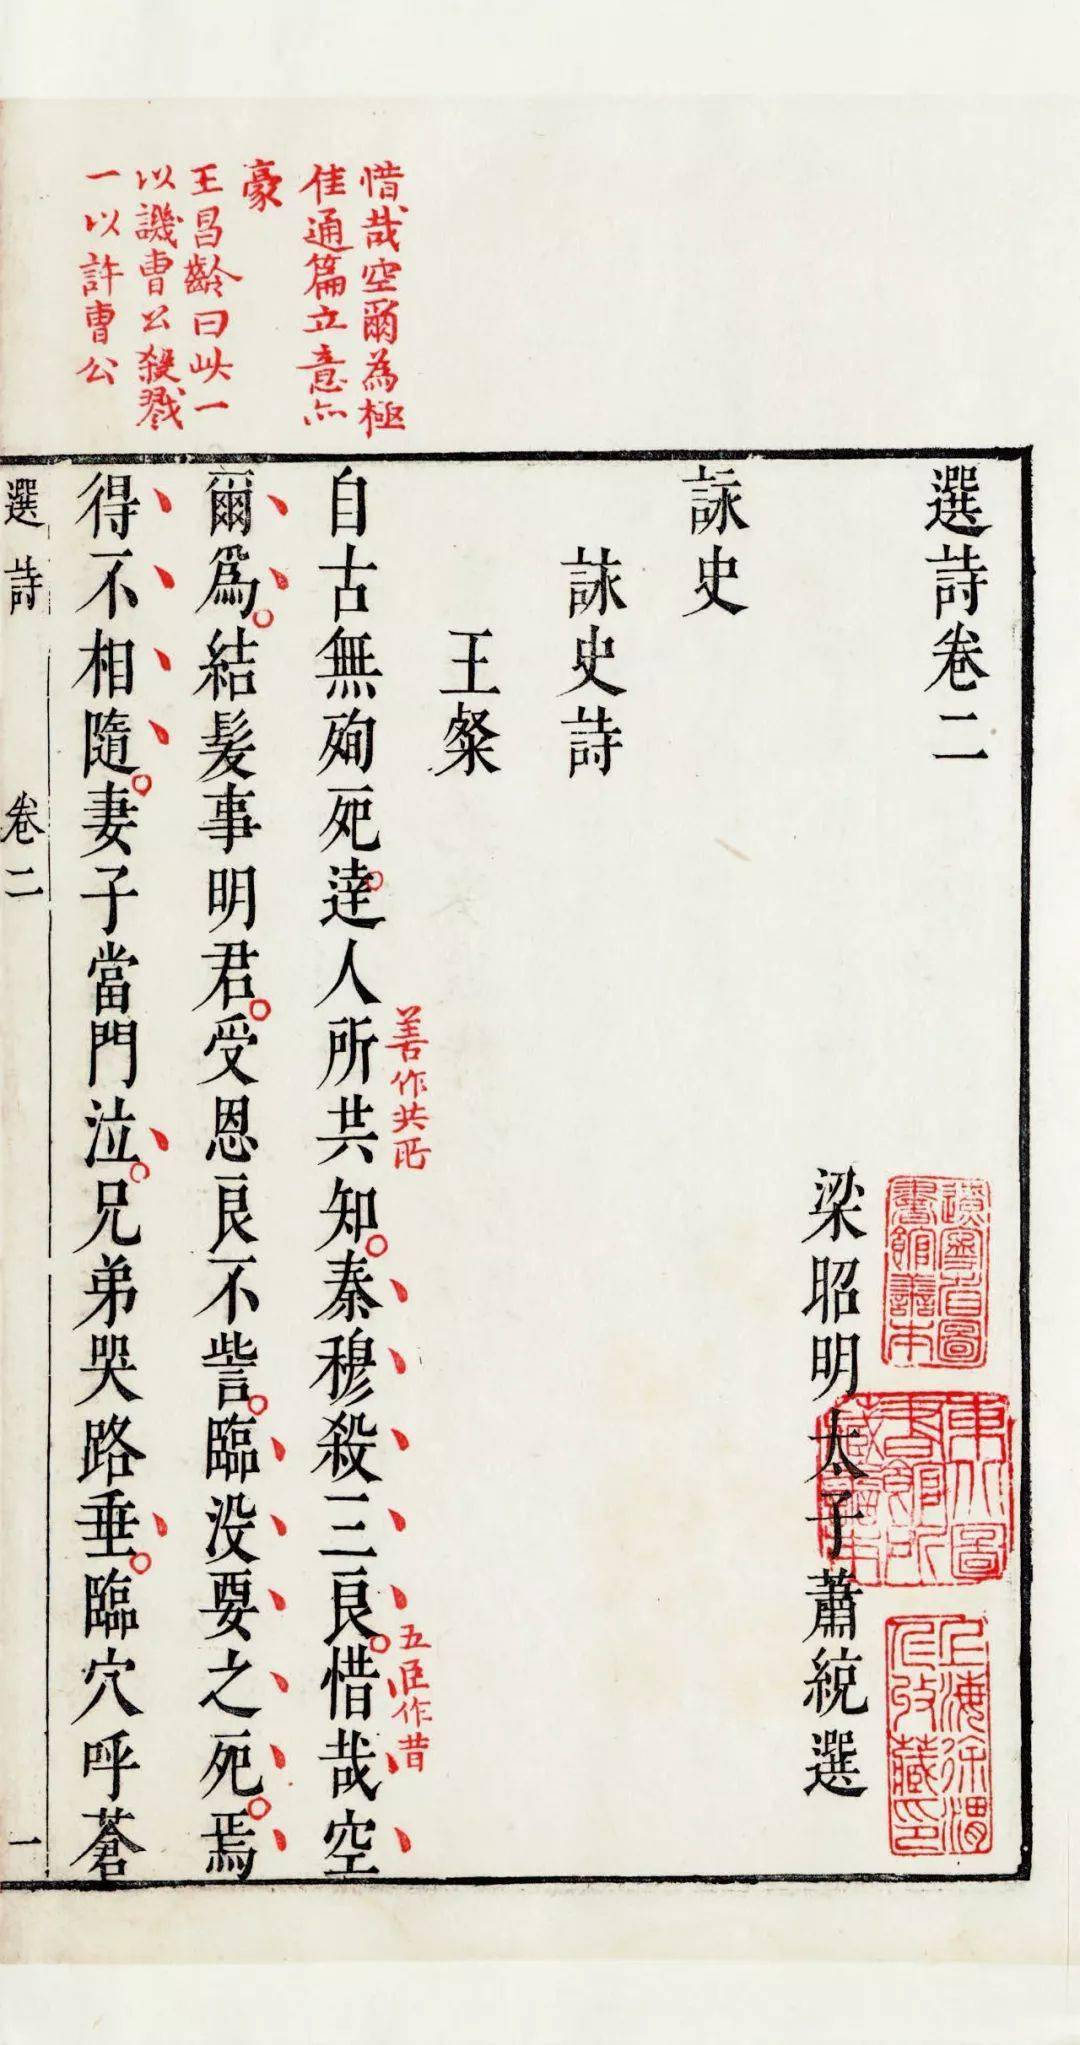 選詩卷二
梁昭明太子蕭統選
詠史
詠史詩
王粲
自古無殉死達人所共知秦穆殺三良惜哉空
善作共所
五臣作昔
爾爲結髪事明君受恩良不訾臨没要之死焉
得不相隨妻子當門泣兄弟哭路垂臨穴呼蒼
惜哉空爾為極
佳通篇立意亦
豪
王昌齡曰此一
以譏曹公殺戮
一以許曹公
選詩
卷二
一
上海徐渭
仁收藏印